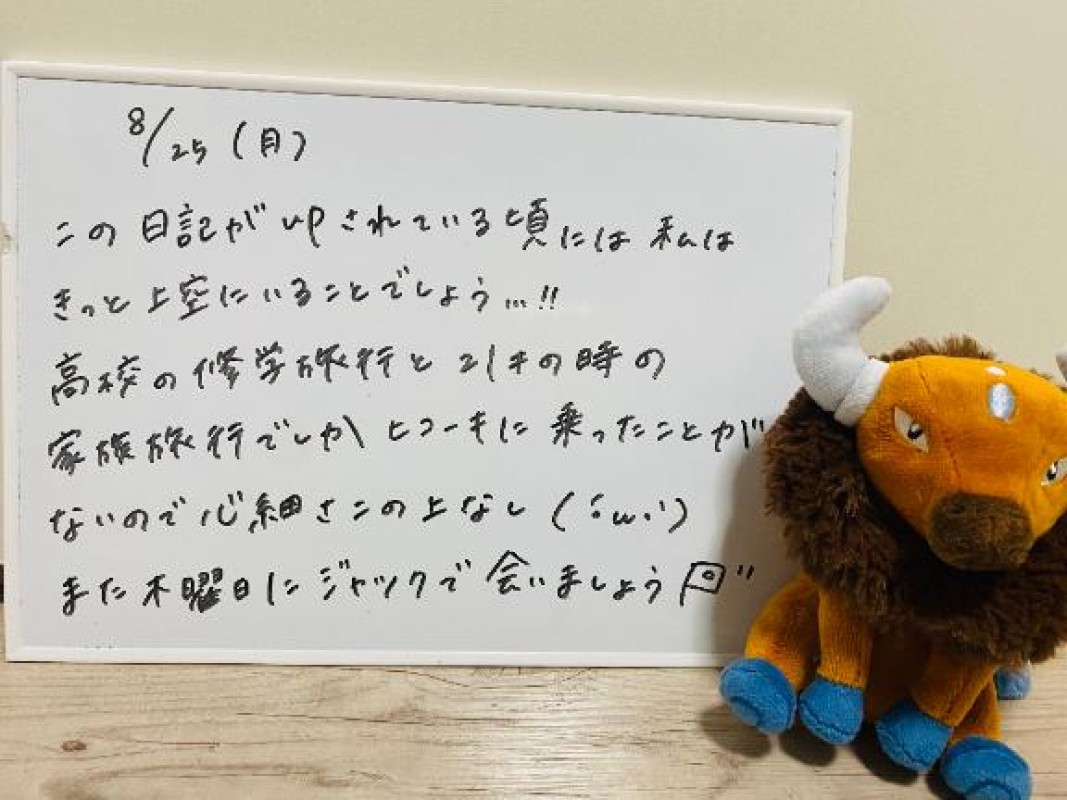 8/25(月)
この日記がupされている頃には私は
きっと上空にいることでしょう...!!
高校の修学旅行と21才の時の
家族旅行でしかヒコーキに乗ったことが
ないので心細さこの上なし(´・ω・`)
また木曜日にジャックで会いましょう